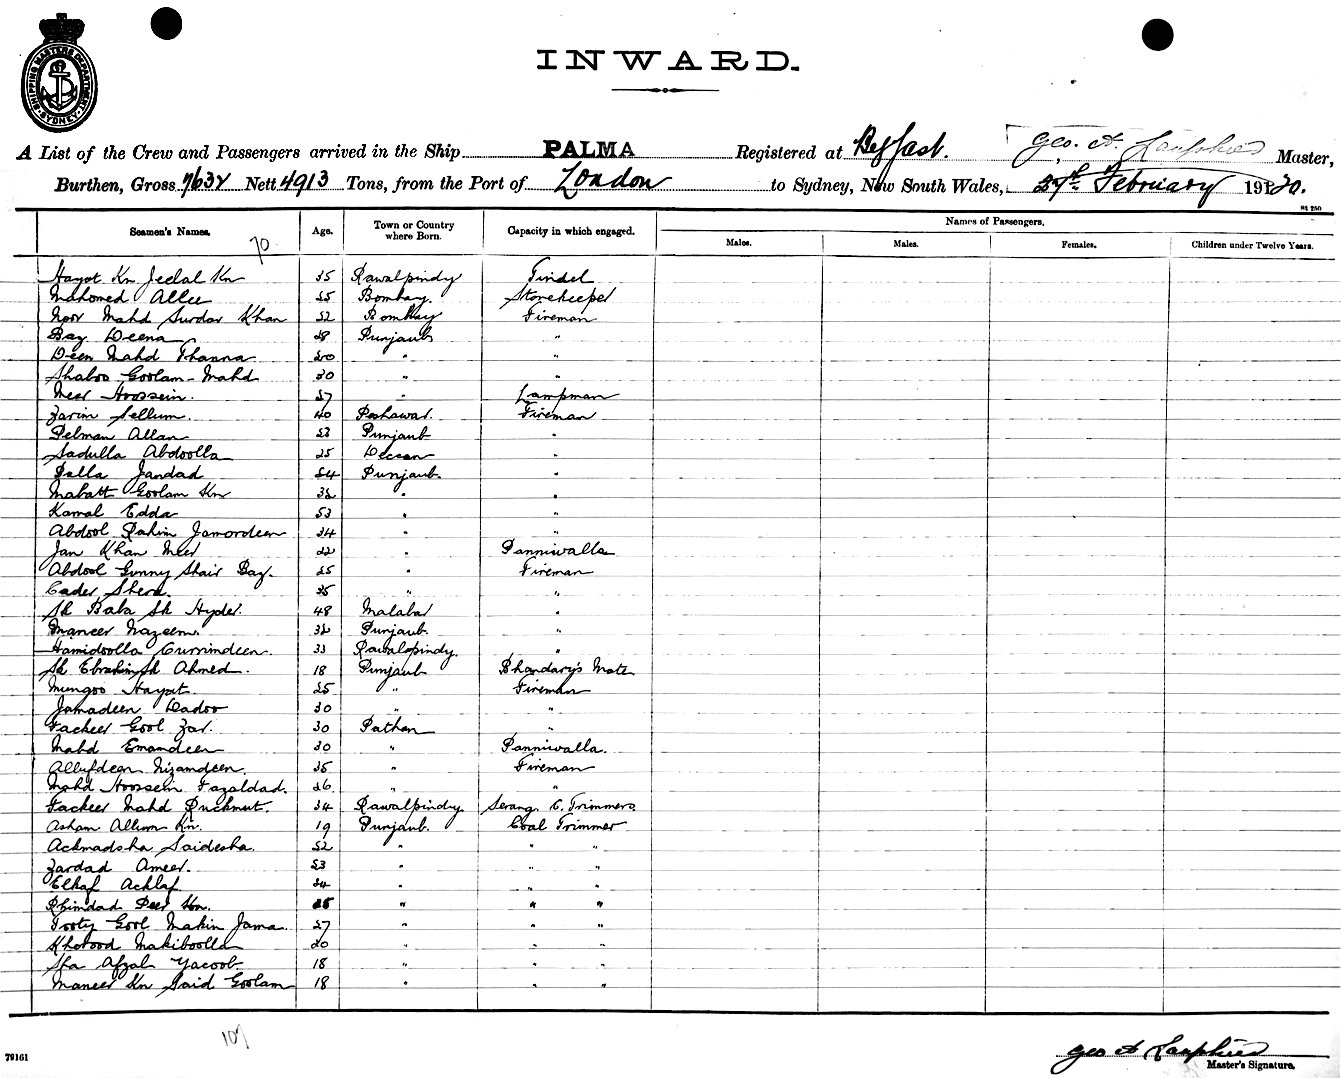 SHIPPING MASTERS DEPARTMENT SYDNEY
INWARD.
A List of the Crew and Passengers arrived in the Ship PALMA Registered at Belfast. Geo. A. Master,
Burthen, Gross 7632 Nett 4913 Tons, from the Port of London to Sydney, New South Wales, 27th February 1920.
St 250
Seamen's Names. Age. Town or Country where Born. Capacity in which engaged. Names of Passengers.
70
Males. Males. Females. Children under Twelve Years.
Hayat Kn Jeelal Kn 35 Rawalpindy Tindel
Mahomed Allee 25 Bombay. Storekeeper
Noor Mahd Surdar Khan 22 Bombay Fireman
Bay Deena 28 Punjaub "
Deen Mahd Thanna 20 " "
Shaboo Goolam-Mahd 30 " "
Meer Hoossein. 27 " Lampman
Zarin Sellum. 40 Peshawar. Fireman
Delman Allan 23 Punjaub "
Sadulla Abdoolla 25 Deccan "
Dalla Jandad 24 Punjaub. "
Mabatt Goolam Kn 32 " "
Kamal Edda 23 " "
Abdool Rahim Jamordeen 34 " "
Jan Khan Meer 22 " Panniwalla
Abdool Gunny Shair Baz. 25 " Fireman
Cader Shera. 35 " "
Sk Baba Sk Hyder. 48 Malabar "
Maneer Nazeem. 32 Punjaub. "
Hamidoolla Gurrindeen. 33 Rawalpindy. "
Sk Ebrahim Sk Ahmed. 18 Punjaub Bhandary's Mate
Mungoo Hayat. 25 " Fireman
Jamadeen Dadoo 30 " "
Fackeer Gool Zar. 30 Pathan "
Mahd Emamdeen 30 " Panniwalla.
Allufdeen Nizamdeen. 35 " Fireman
Mahd Hoossein Fazaldad. 26. " "
Fackeer Mahd Ruckmut. 34 Rawalpindy. Serang C. Trimmers
Asham Allum Kn. 19 Punjaub. Coal Trimmer
Ackmadsha Saidesha. 22 " " "
Zardad Ameer. 23 " " "
Elkaf Achlaf 24 " " "
Rhimdad Peer Kn. 25 " " "
Tooty Gool Makin Jama. 27 " " "
Khotood Makiboolla 20 " " "
Sha Afzal Yacoob. 18 " " "
Maneer Kn Said Goolam 18 " " "
107
79161
Geo A
Master's Signature.